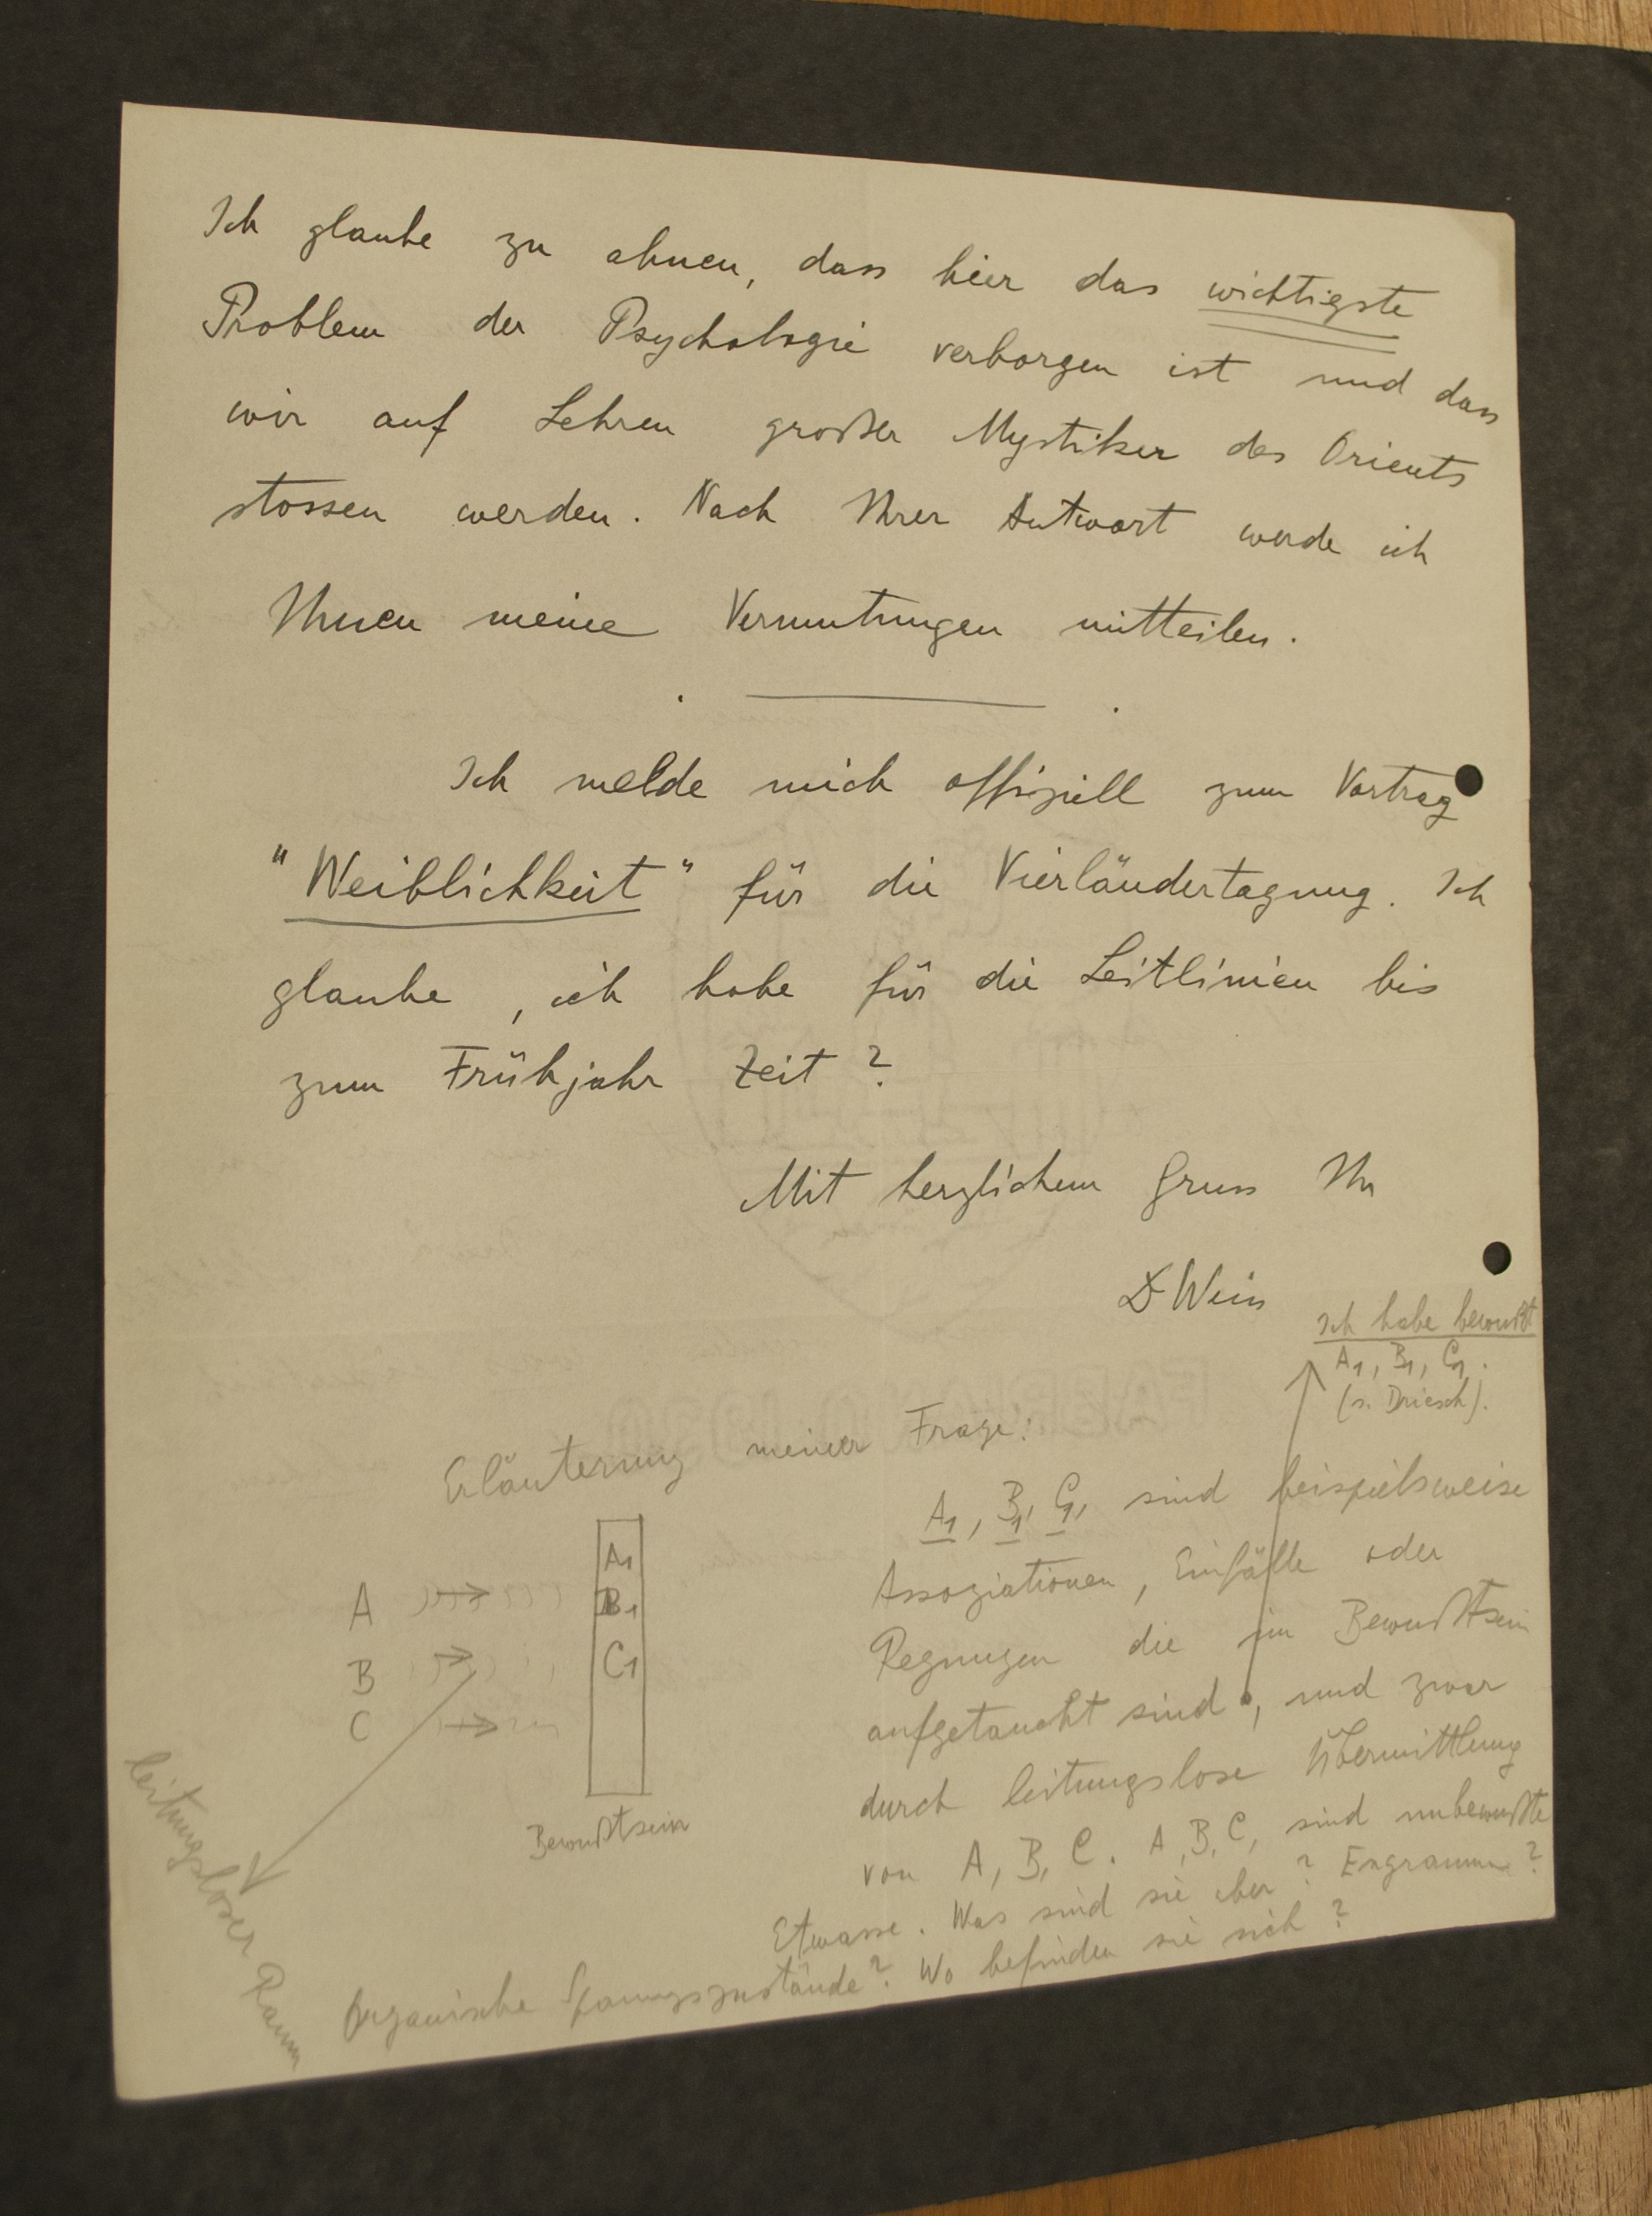 Ich glaube zu ahnen, dass hier das wichtigste
Problem der Psychologie verborgen ist und dass
wir auf Lehren großer Mystiker des Orients
stossen werden. Nach Ihrer Antwort werde ich
Ihnen meine Vermutungen mitteilen.
Ich melde mich offiziell zum Vortrag
"Weiblichkeit" für die Vierländertagung. Ich
glaube, ich habe für die Leitlinien bis
zum Frühjahr Zeit?
Mit herzlichem Gruss Ihr
Ich habe bewußt
A1, B1, C1.
(s. Driesch).
Erläuterung meiner Frage:
A1
B1
C1
A
B
C
Bewußtsein
leitungsloser Raum
A1, B1, C1, sind beispielsweise
Assoziationen, Einfälle oder
Regungen die im Bewußtsein
aufgetaucht sind, und zwar
durch leitungslose Übermittlung
von A, B, C. A, B, C, sind unbewußte
Etwasse. Was sind sie aber? Engramme?
Organische Spannungszustände? Wo befinden sie sich?